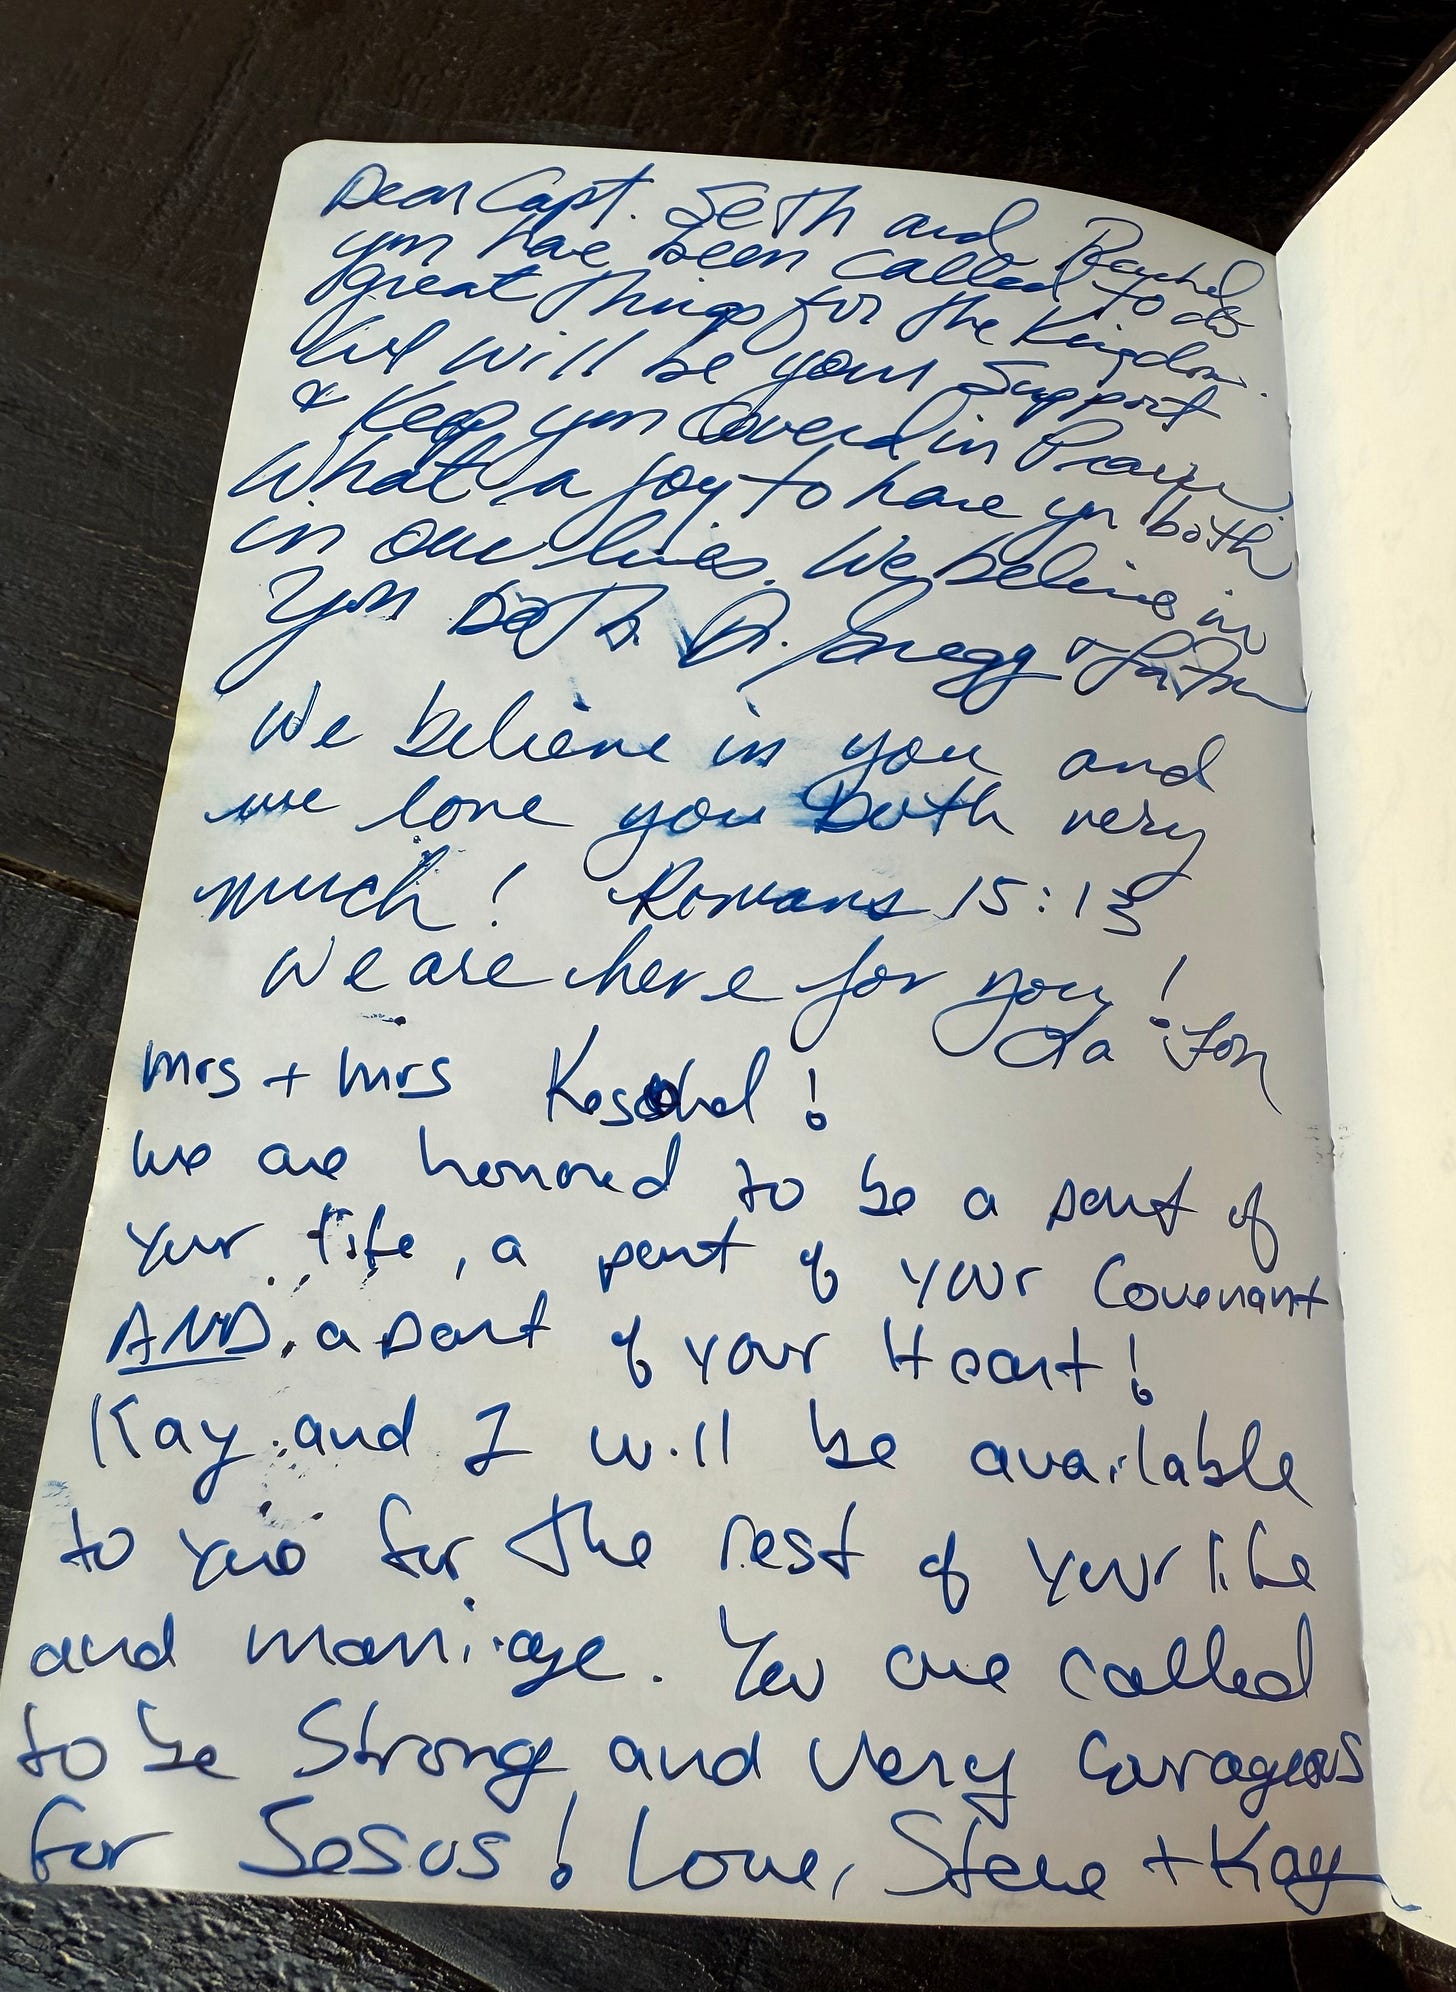 Dear Capt. Seth and Rachel
you have been called to do
great things for the Kingdom.
We will be your Support
& Keep you Covered in Prayer
What a joy to have you both
in our lives. We believe in
You Both. Dr. Gregg &
We believe in you and
we love you Both very
much! Romans 15:13
We are here for you!
La Fon
Mrs + Mrs !
We are honored to be a part of
your life, a part of your Covenant
AND, a part of your Heart!
Kay and I will be available
to you for the rest of your life
and marriage. You are called
to be Strong and very Courageous
for Jesus! Love, Steve + Kay